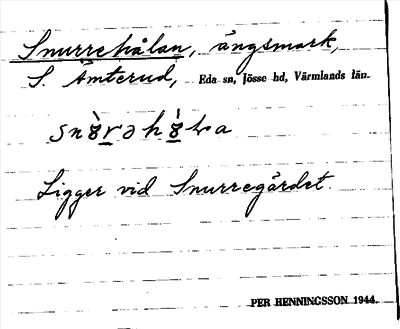 Snurrehålan, ängsmark,
S. Ämterud, Eda sn, Jösse hd, Värmlands län.
Ligger vid Snurregärdet.
PER HENNINGSSON 1944.